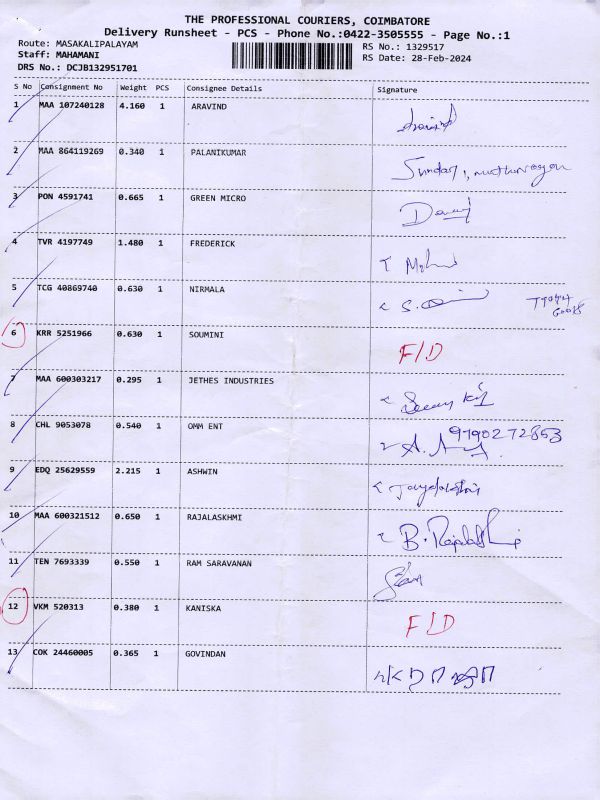 THE PROFESSIONAL COURIERS, COIMBATORE
Delivery Runsheet - PCS - Phone No.:0422-3505555 - Page No.:1
Route: MASAKALIPALAYAM RS No.: 1329517
Staff: MAHAMANI RS Date: 28-Feb-2024
DRS No.: DCJB132951701
S No Consignment No Weight PCS Consignee Details Signature
1 MAA 107240128 4.160 1 ARAVIND
2 MAA 864119269 0.340 1 PALANIKUMAR
3 PON 4591741 0.665 1 GREEN MICRO
4 TVR 4197749 1.480 1 FREDERICK
5 TCG 40869740 0.630 1 NIRMALA
6 KRR 5251966 0.630 1 SOUMINI F/D
7 MAA 600303217 0.295 1 JETHES INDUSTRIES
8 CHL 9053078 0.540 1 OMM ENT 9790272853
9 EDQ 25629559 2.215 1 ASHWIN
10 MAA 600321512 0.650 1 RAJALASKHMI
11 TEN 7693339 0.550 1 RAM SARAVANAN
12 VKM 520313 0.380 1 KANISKA F/D
13 COK 24460005 0.365 1 GOVINDAN